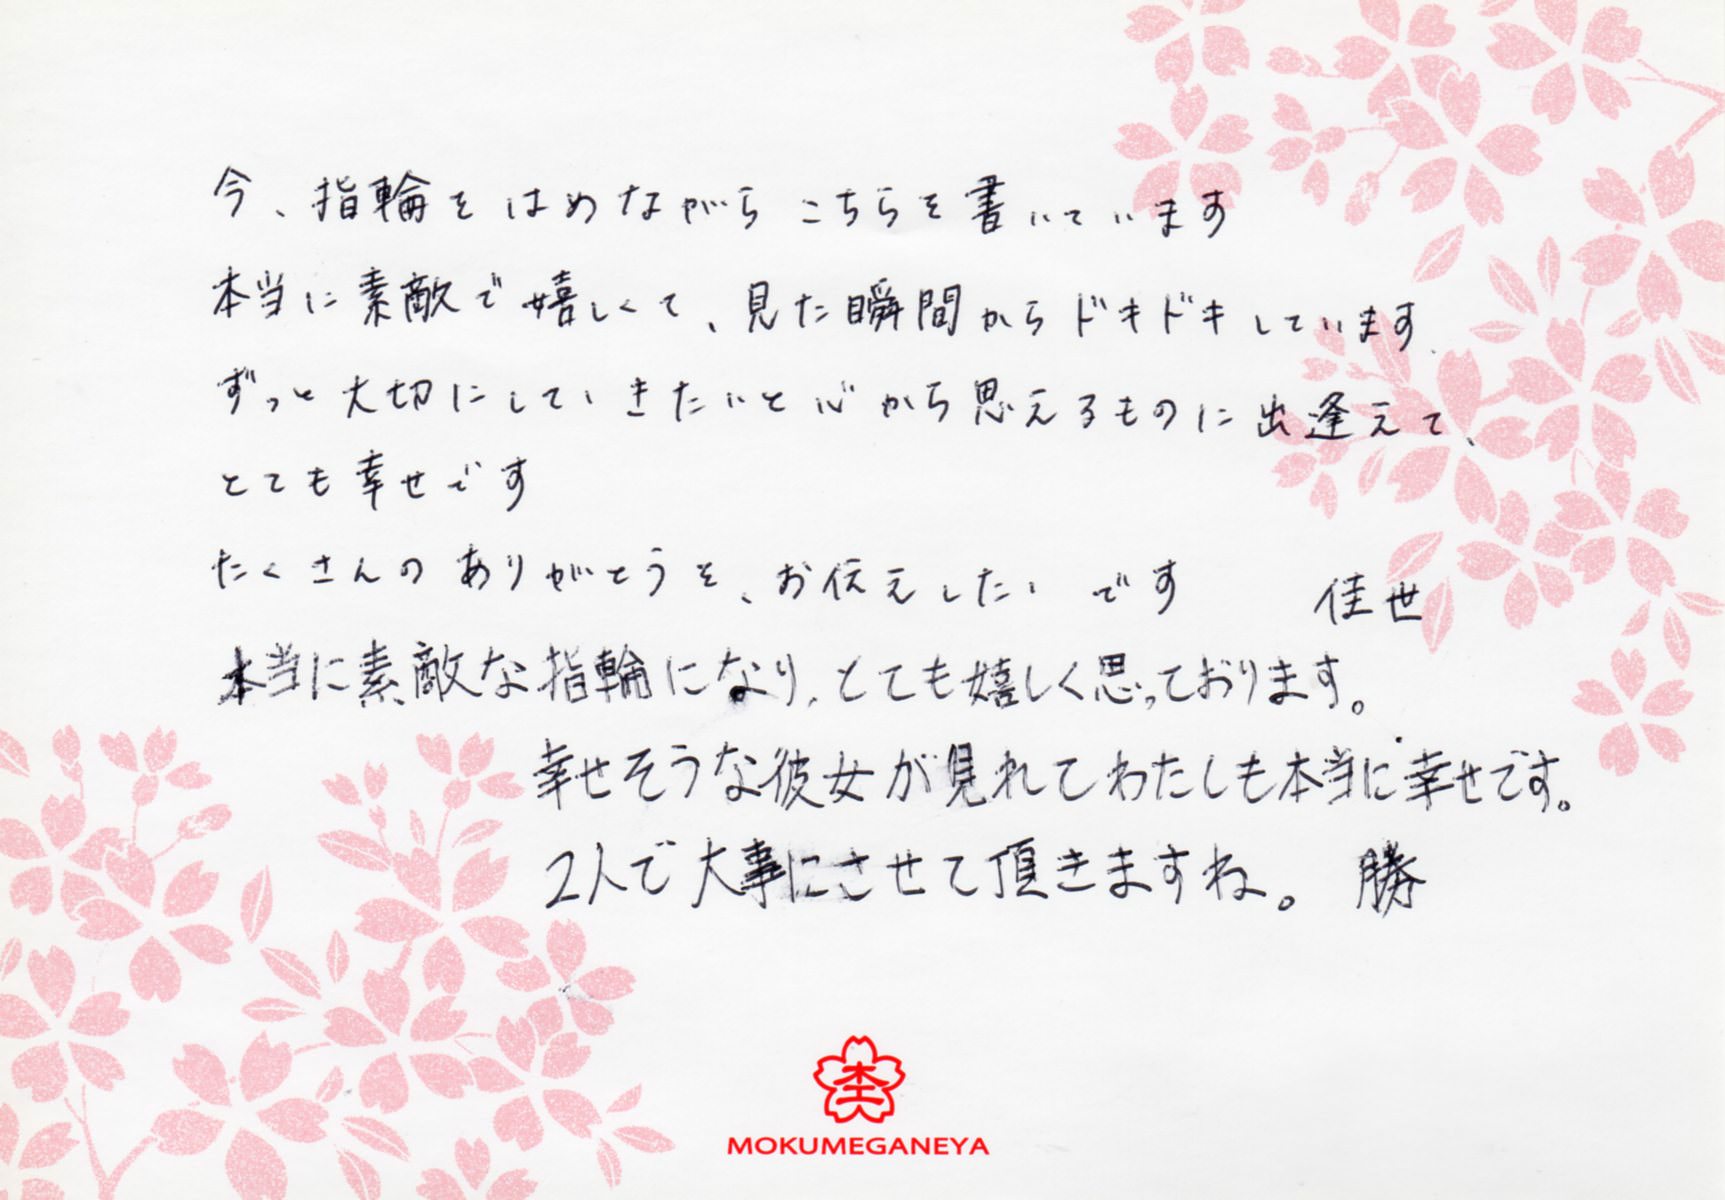 今、指輪をはめながらこちらを書いています
本当に素敵で嬉しくて、見た瞬間からドキドキしています.
ずっと大切にしていきたいと心から思えるものに出逢えて、
とても幸せです
たくさんのありがとうを、お伝えしたいです 佳世
本当に素敵な指輪になり、とても嬉しく思っております。
幸せそうな彼女が見れてわたしも本当に幸せです。
2人で大事にさせて頂きますね。 勝
杢
MOKUMEGANEYA